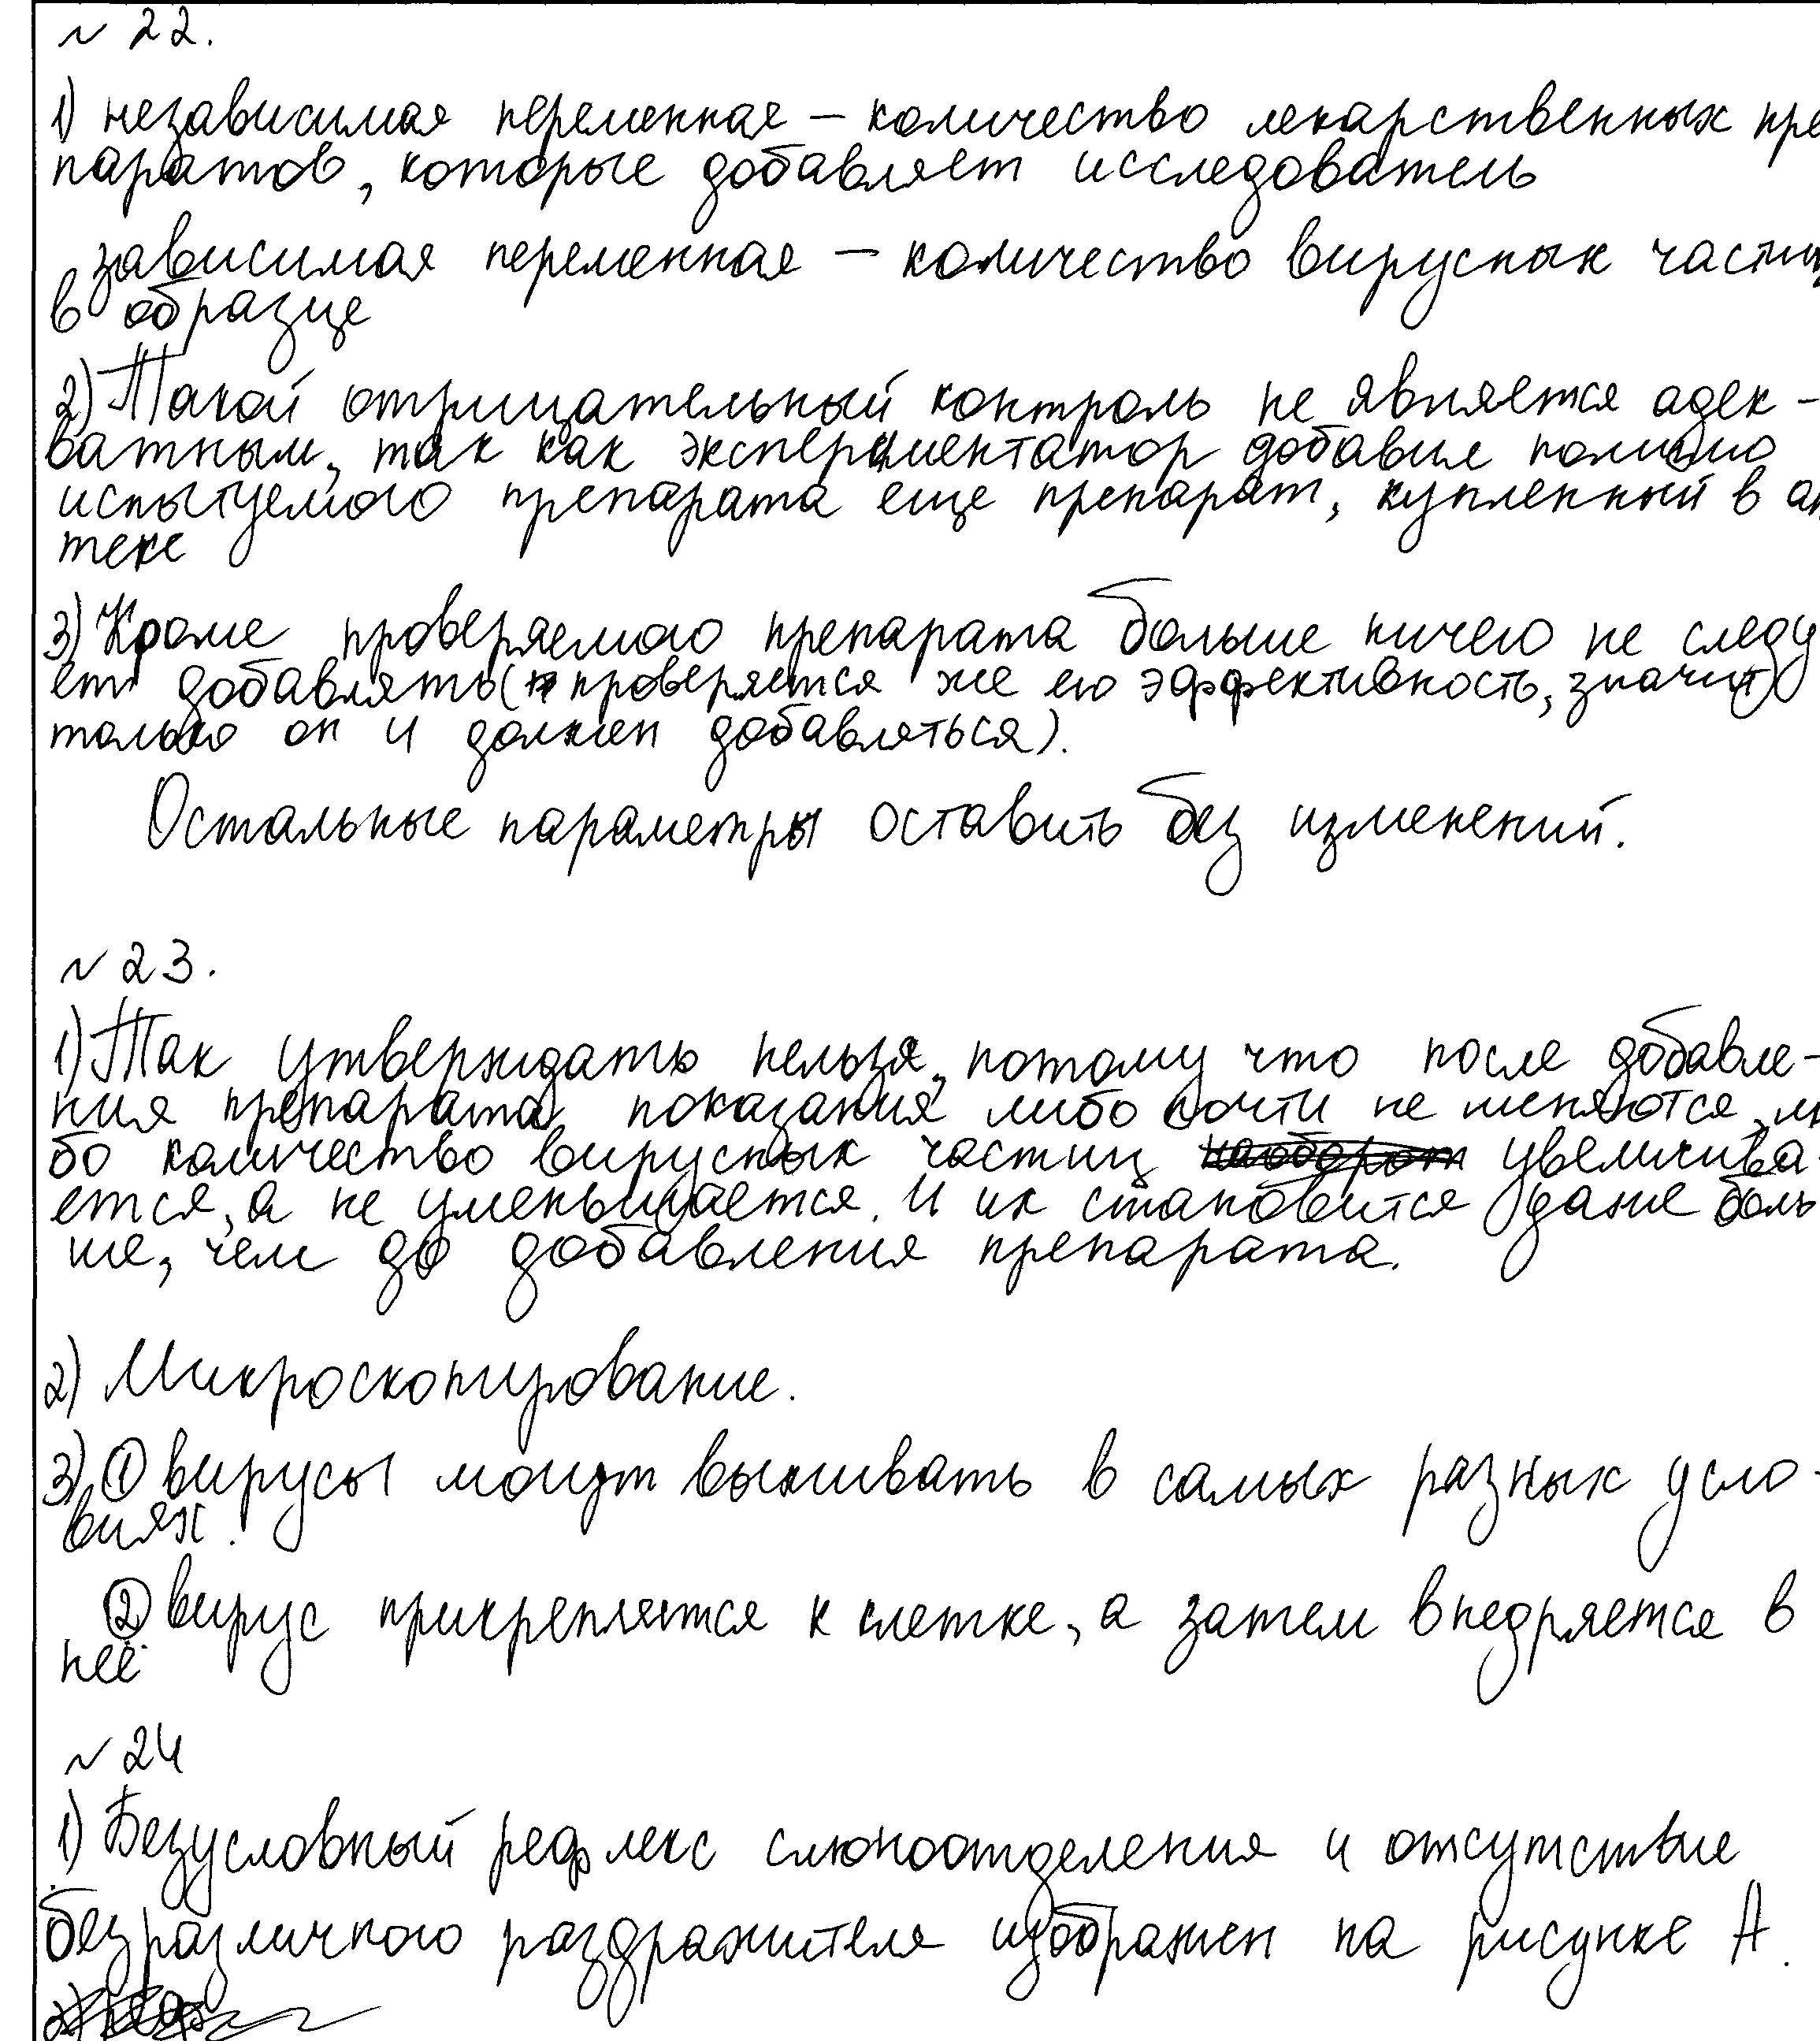 № 22.
1) независимая переменная – количество лекарственных пре
паратов, которые добавляет исследователь
зависимая переменная – количество вирусных частиц
в образце
2) Такой отрицательный контроль не является адек-
ватным, так как экспериментатор добавил помимо
испытуемого препарата еще препарат, купленный в ап
теке
3) Кроме проверяемого препарата больше ничего не следу
ет добавлять (проверяется же его эффективность, значит
только он и должен добавляться).
Остальные параметры оставить без изменений.
№ 23.
1) Так утверждать нельзя, потому что после добавле-
ния препарата показания либо почти не меняются, ли
бо количество вирусных частиц увеличива-
ется, а не уменьшается. И их становится даже боль
ше, чем до добавления препарата.
2) Микроскопирование.
3) ① вирусы могут выживать в самых разных усло-
виях.
② вирус прикрепляется к клетке, а затем внедряется в
неё
№ 24
1) Безусловный рефлекс слюноотделения и отсутствие
безразличного раздражителя изображен на рисунке А.